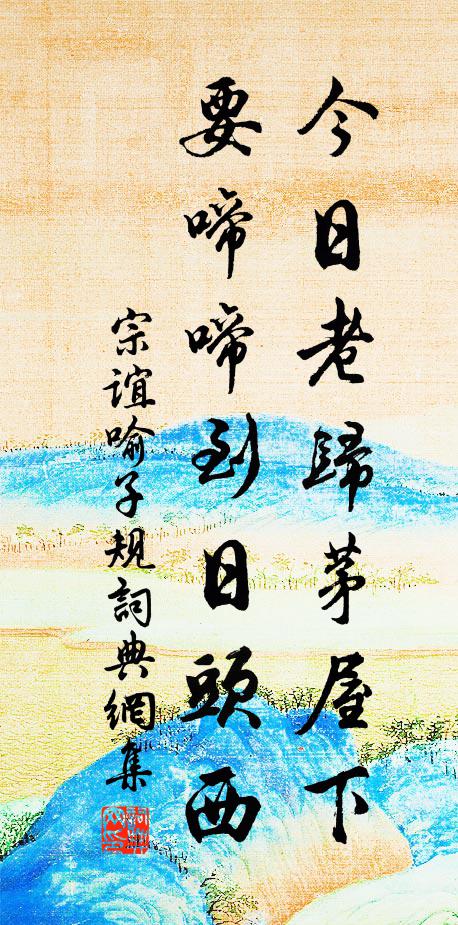 今日老歸茅屋下
要啼啼到日頭西
宗誼喻子規詞典網集